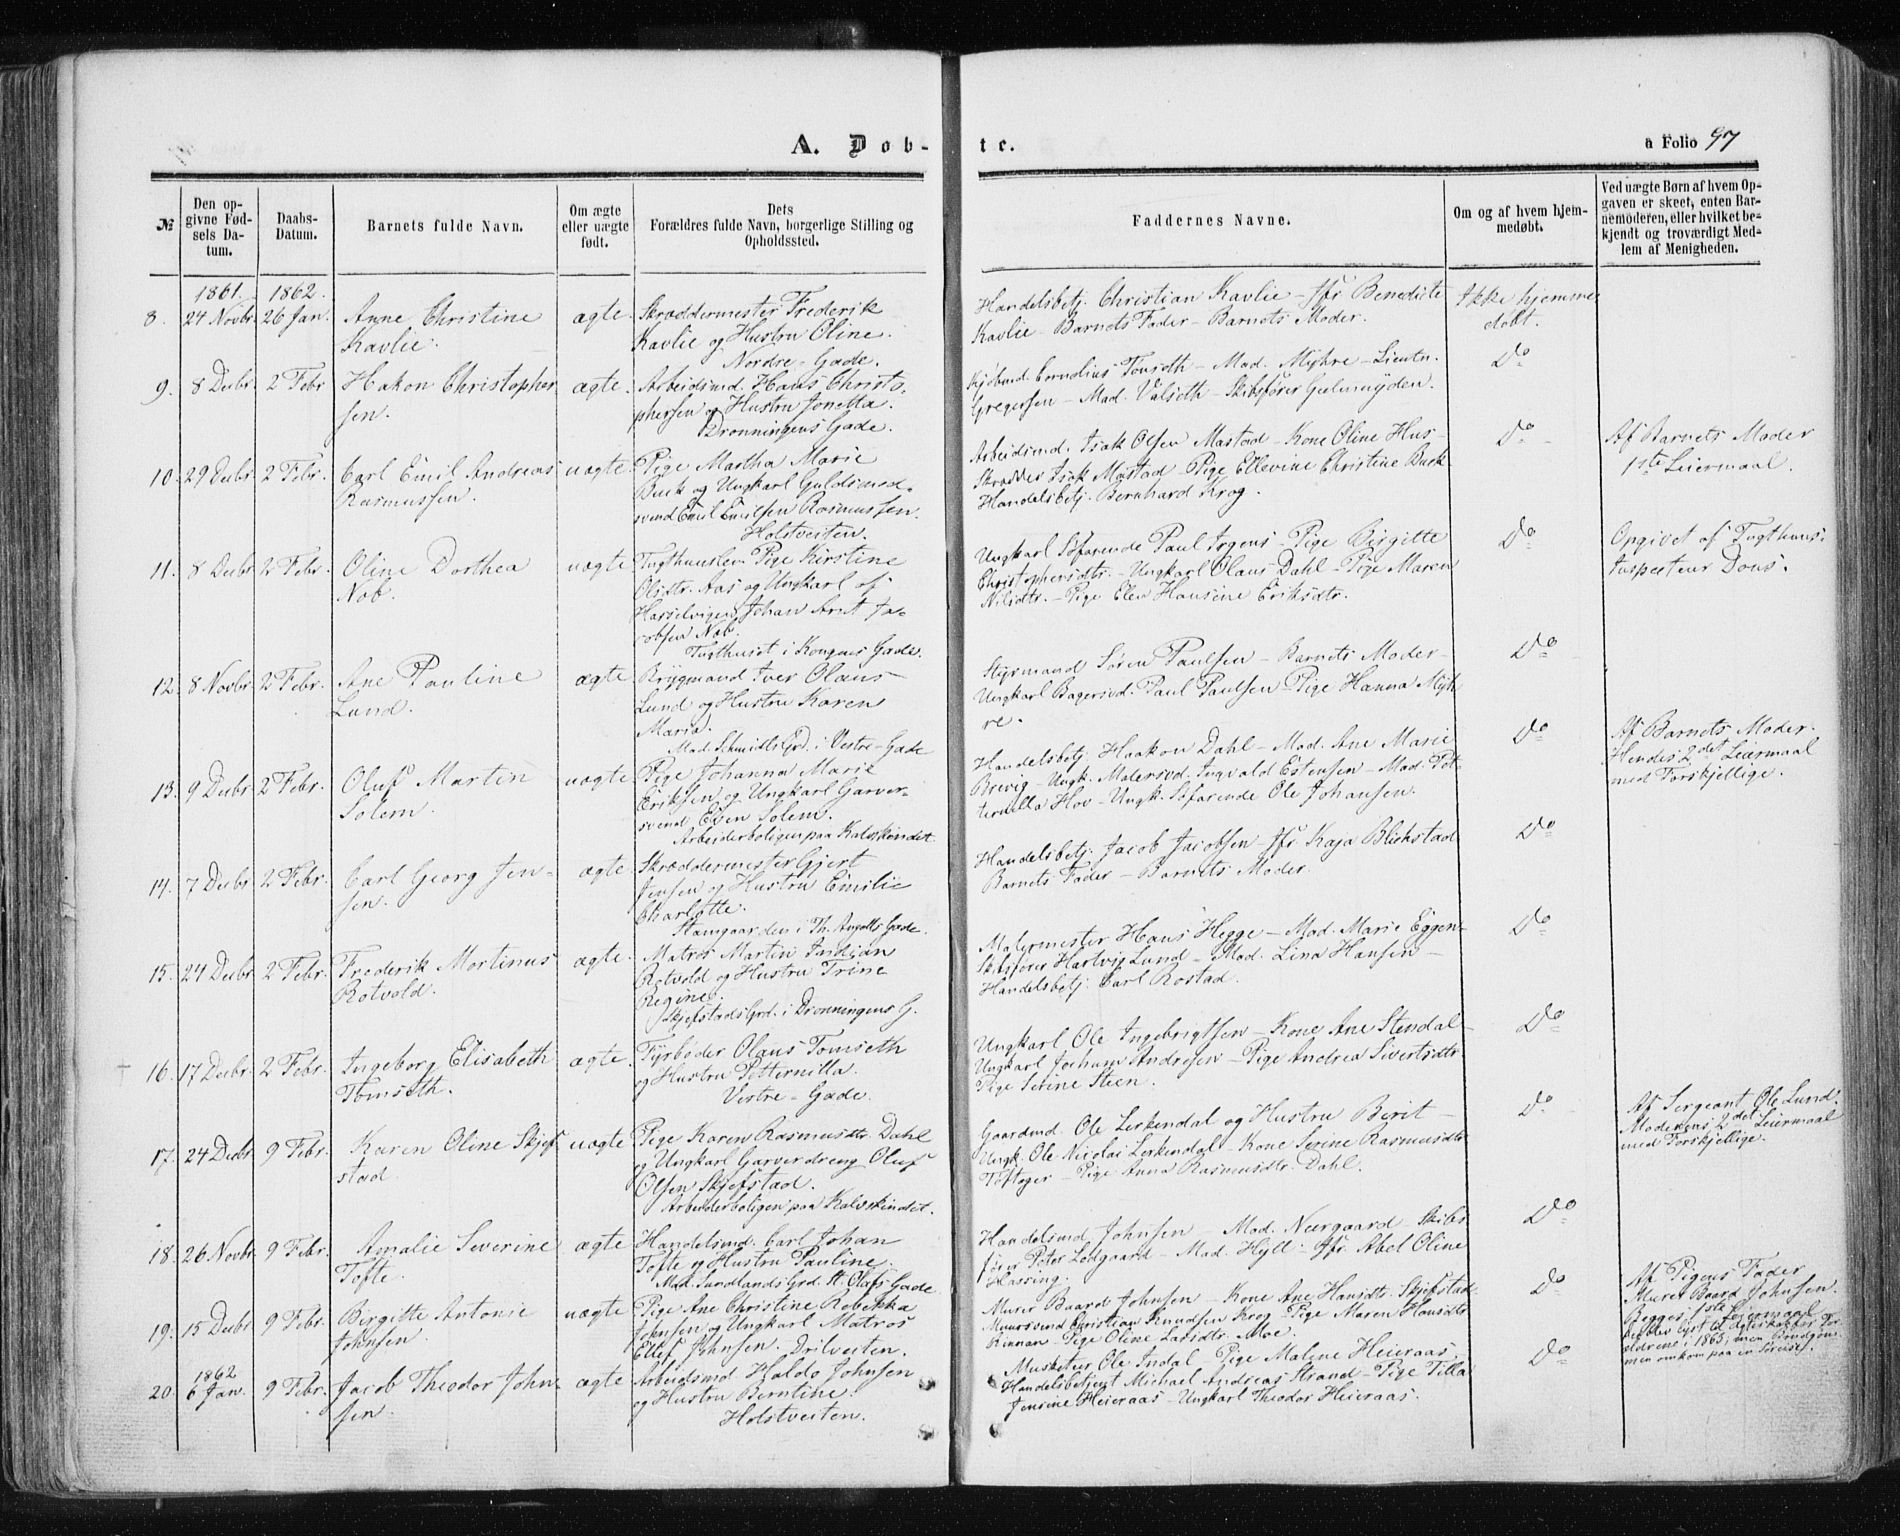 A. Døb-
te.
a Folio 97
№
Den op-
givne Fød-
sels Da-
tum.
Daabs-
Datum.
Barnets fulde Navn.
Om ægte
eller uægte
født.
Dets
Forældres fulde Navn, borgerlige Stilling og
Opholdssted.
Faddernes Navne.
Om og af hvem hjem-
medøbt.
Ved uægte Børn af hvem Op-
gaven er skeet, enten Bar-
nemoderen, eller hvilket be-
kjendt og troværdigt Med-
lem af Menigheden.
1861. 1862.
8. 24 Novbr. 26 Jan. Anne Christine
Kavlie.
ægte.
Skræddermester Frederik
Kavlie og Hustru Oline.
Nordre-Gade.
Handelsbetj. Christian Kavlie – Jfr Benedicte
Kavlie – Barnets Fader – Barnets Moder.
Ikke hjemme
døbt.
9. 8 Decbr. 2 Febr. Hakon Christopher
sen.
ægte.
Arbeidsmd. Hans Christo-
phersen og Hustru Jonetta.
Dronningens Gade.
Kjøbmd. Cornelius Tonseth – Mad. Myhre – Lieutn.
Gregersen – Mad. Valseth – Skibsfører Geelmuyden.
Do
10. 29 Decbr. 2 Febr. Carl Emil Andreas
Rasmussen.
uægte.
Pige Martha Marie
Buck og Ungkarl Guldsmed-
svend Emil Emilsen Rasmussen.
Holstveiten.
Arbeidsmd. Isak Olsen Mastad – Kone Oline Hus-
Skrædder Isak Mastad – Pige Ellevine Christine Buck
Handelsbetj. Bernhard Krog.
Do
Af Barnets Moder
1ste Leiermaal.
11. 8 Decbr. 2 Febr. Oline Dorthea
Nob.
uægte
Tugthuuslem Pige Kirstine
Olsdtr. Aas og Ungkarl af
Hasselvigen Johan Arnt Ja-
cobsen Nob.
Tugthuset i Kongens Gade.
Ungkarl Søfarende Paul Irgens – Pige Birgitte
Christophersdtr. – Ungkarl Olaus Dahl – Pige Maren
Nilsdtr. – Pige Elen Hansine Eriksdtr.
Do
Opgivet af Tugthuus-
Inspecteur Dons.
12. 8 Novbr. 2 Febr. Ane Pauline
Lund.
ægte
Brygmand Iver Olaus
Lund og Hustru Karen
Maria.
Mad. Schmidts Grd. i Vestre-Gade
Styrmand Søren Paulsen – Barnets Moder –
Ungkarl Bagersvd. Paul Paulsen – Pige Hanna Myh
re.
Do
13. 9 Decbr. 2 Febr. Oluf Martin
Solem.
uægte
Pige Johanna Marie
Eriksen og Ungkarl Garver-
svend Even Solem.
Arbeiderboligen paa Kalvskindet
Handelsbetj. Haakon Dahl – Mad. Ane Marie
Brevig – Ungk. Malersvd. Ingvald Estensen – Mad. Pet-
ternilla Hov – Ungk. Søfarende Ole Johansen.
Do
Af Barnets Moder.
Hendes 2det Leiermaal
med Forskjellige.
14. 7 Decbr. 2 Febr. Carl Georg Jen-
sen.
ægte.
Skræddermester Gjert
Jensen og Hustru Emilie
Charlotte.
Stamgaarden i Th. Angells Gade.
Handelsbetj. Jacob Jacobsen – Jfr Kaja Blichstad
Barnets Fader – Barnets Moder.
Do
15. 24 Decbr. 2 Febr. Frederik Martinus
Rotvold.
ægte.
Matros Martin
Rotvold og Hustru Trine
Regine.
Skjefstads Grd. i Dronningens G.
Malermester Hans Hegge – Mad. Marie Eggen –
Skibsfører Hartvig Lund – Mad. Lina Hansen –
Handelsbetj. Carl Rostad.
Do
16. 17 Decbr. 2 Febr. Ingeborg Elisabeth
Tomseth.
ægte.
Fyrbøder Olaus Tomseth
og Hustru Petternilla.
Vestre-Gade.
Ungkarl Ole Ingebrigtsen – Kone Ane Stendal –
Ungkarl Jochum Andresen – Pige Andrea Sivertsdtr.
Pige Serine Steen.
Do
17. 24 Decbr. 9 Febr. Karen Oline Skjef
stad.
uægte
Pige Karen Rasmusdtr. Dahl
og Ungkarl Garverdreng Oluf
Olsen Skjefstad.
Arbeiderboligen paa Kalvskindet.
Gaardmd. Ole Lerkendal og Hustru Berit –
Ungk. Ole Nicolai Lerkendal – Kone Serine Rasmusdtr
– Pige Anna Rasmusdtr. Dahl.
Do
Af Sergeant Ole Lund.
Moderens 2det Leiermaal
med Forskjellige.
18. 26 Novbr. 9 Febr. Amalie Severine
Tofte.
ægte
Handelsmd. Carl Johan
Tofte og Hustru Pauline.
Mad. Sundlands Grd. St. Olafs Gade
Handelsmd Johnsen – Mad. Neergaard – Skibs
fører Peter Lødgaard – Mad. Hyll – Jfr. Abel Oline
Hassing.
Do
19. 15 Decbr. 9 Febr. Birgitte Antonie
Johnsen.
uægte
Pige Ane Christine Rebekka
Johnsen og Ungkarl Matros
Ellef Johnsen. Drilveiten.
Murer Baard Johnsen – Kone Ane Hansdtr. Skjefstad
Muursvend Christian Knudsen Krog – Pige Maren Hansdtr
Rinnan – Pige Oline Larsdtr. Moe.
Do
Af Pigens Fader
Murer Baard Johnsen.
Begges 1ste Leiermaal
Der blev lyst til Ægteskab for For
ældrene i 1863; men Brudgom-
men omkom paa en Søreise.
1862
20. 6 Jan. 9 Febr. Jacob Theodor John-
sen.
ægte
Arbeidsmd Haldo Johnsen
og Hustru Berntine.
Holstveiten.
Musketeur Ole Indal – Pige Malene Heieraas.
Handelsbetjent Michael Andreas Strand – Pige Tilla
Jensine Heieraas – Ungkarl Theodor Heieraas.
Do